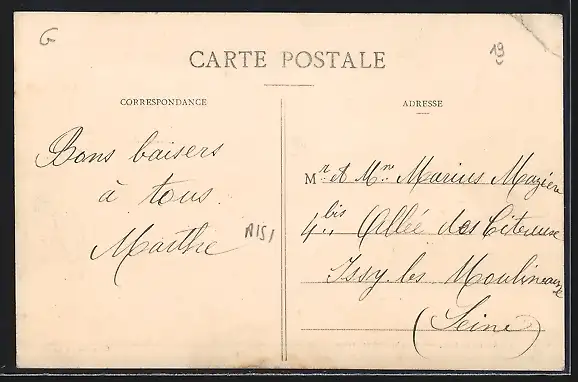 G
19
CARTE POSTALE
CORRESPONDANCE
ADRESSE
Bons baisers
à tous.
Marthe
A151
Mr et Mme Marius Mazière
4 bis Allée des Citeaux
Issy les Moulineaux
(Seine)